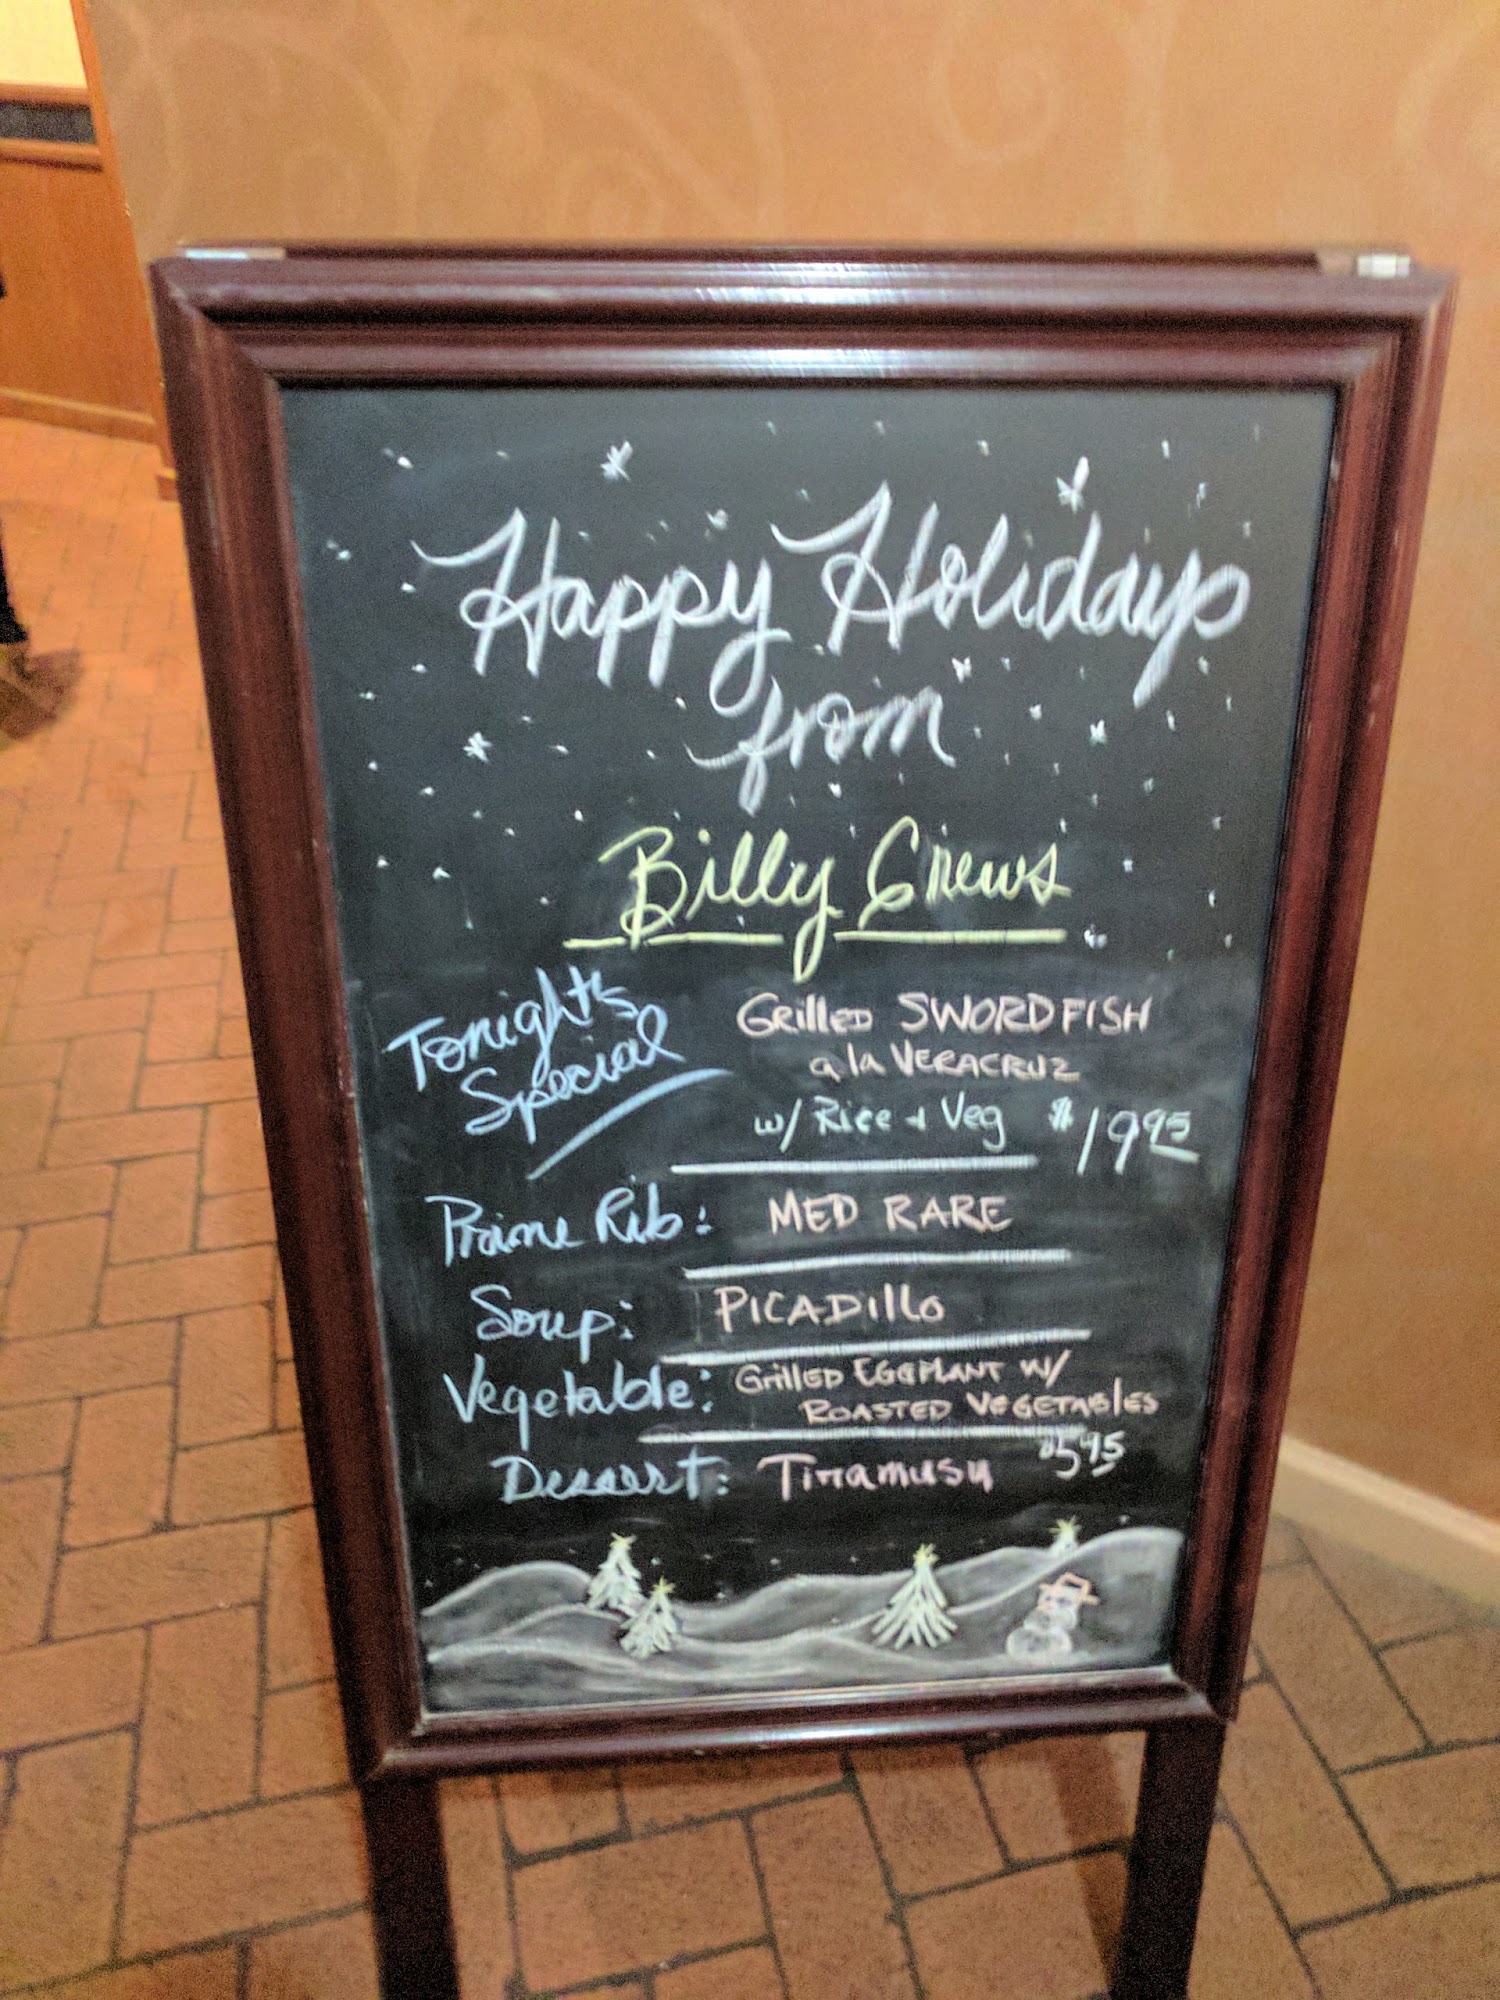 Happy Holidays
from
Billy Crews
Tonight's
Special
GRILLED SWORDFISH
a la VERACRUZ
w/ Rice + Veg $19.95
Prime Rib: MED RARE
Soup: PICADILLO
Vegetable: GRILLED EGGPLANT W/
ROASTED VEGETABLES
Dessert: Tiramusu $5.95